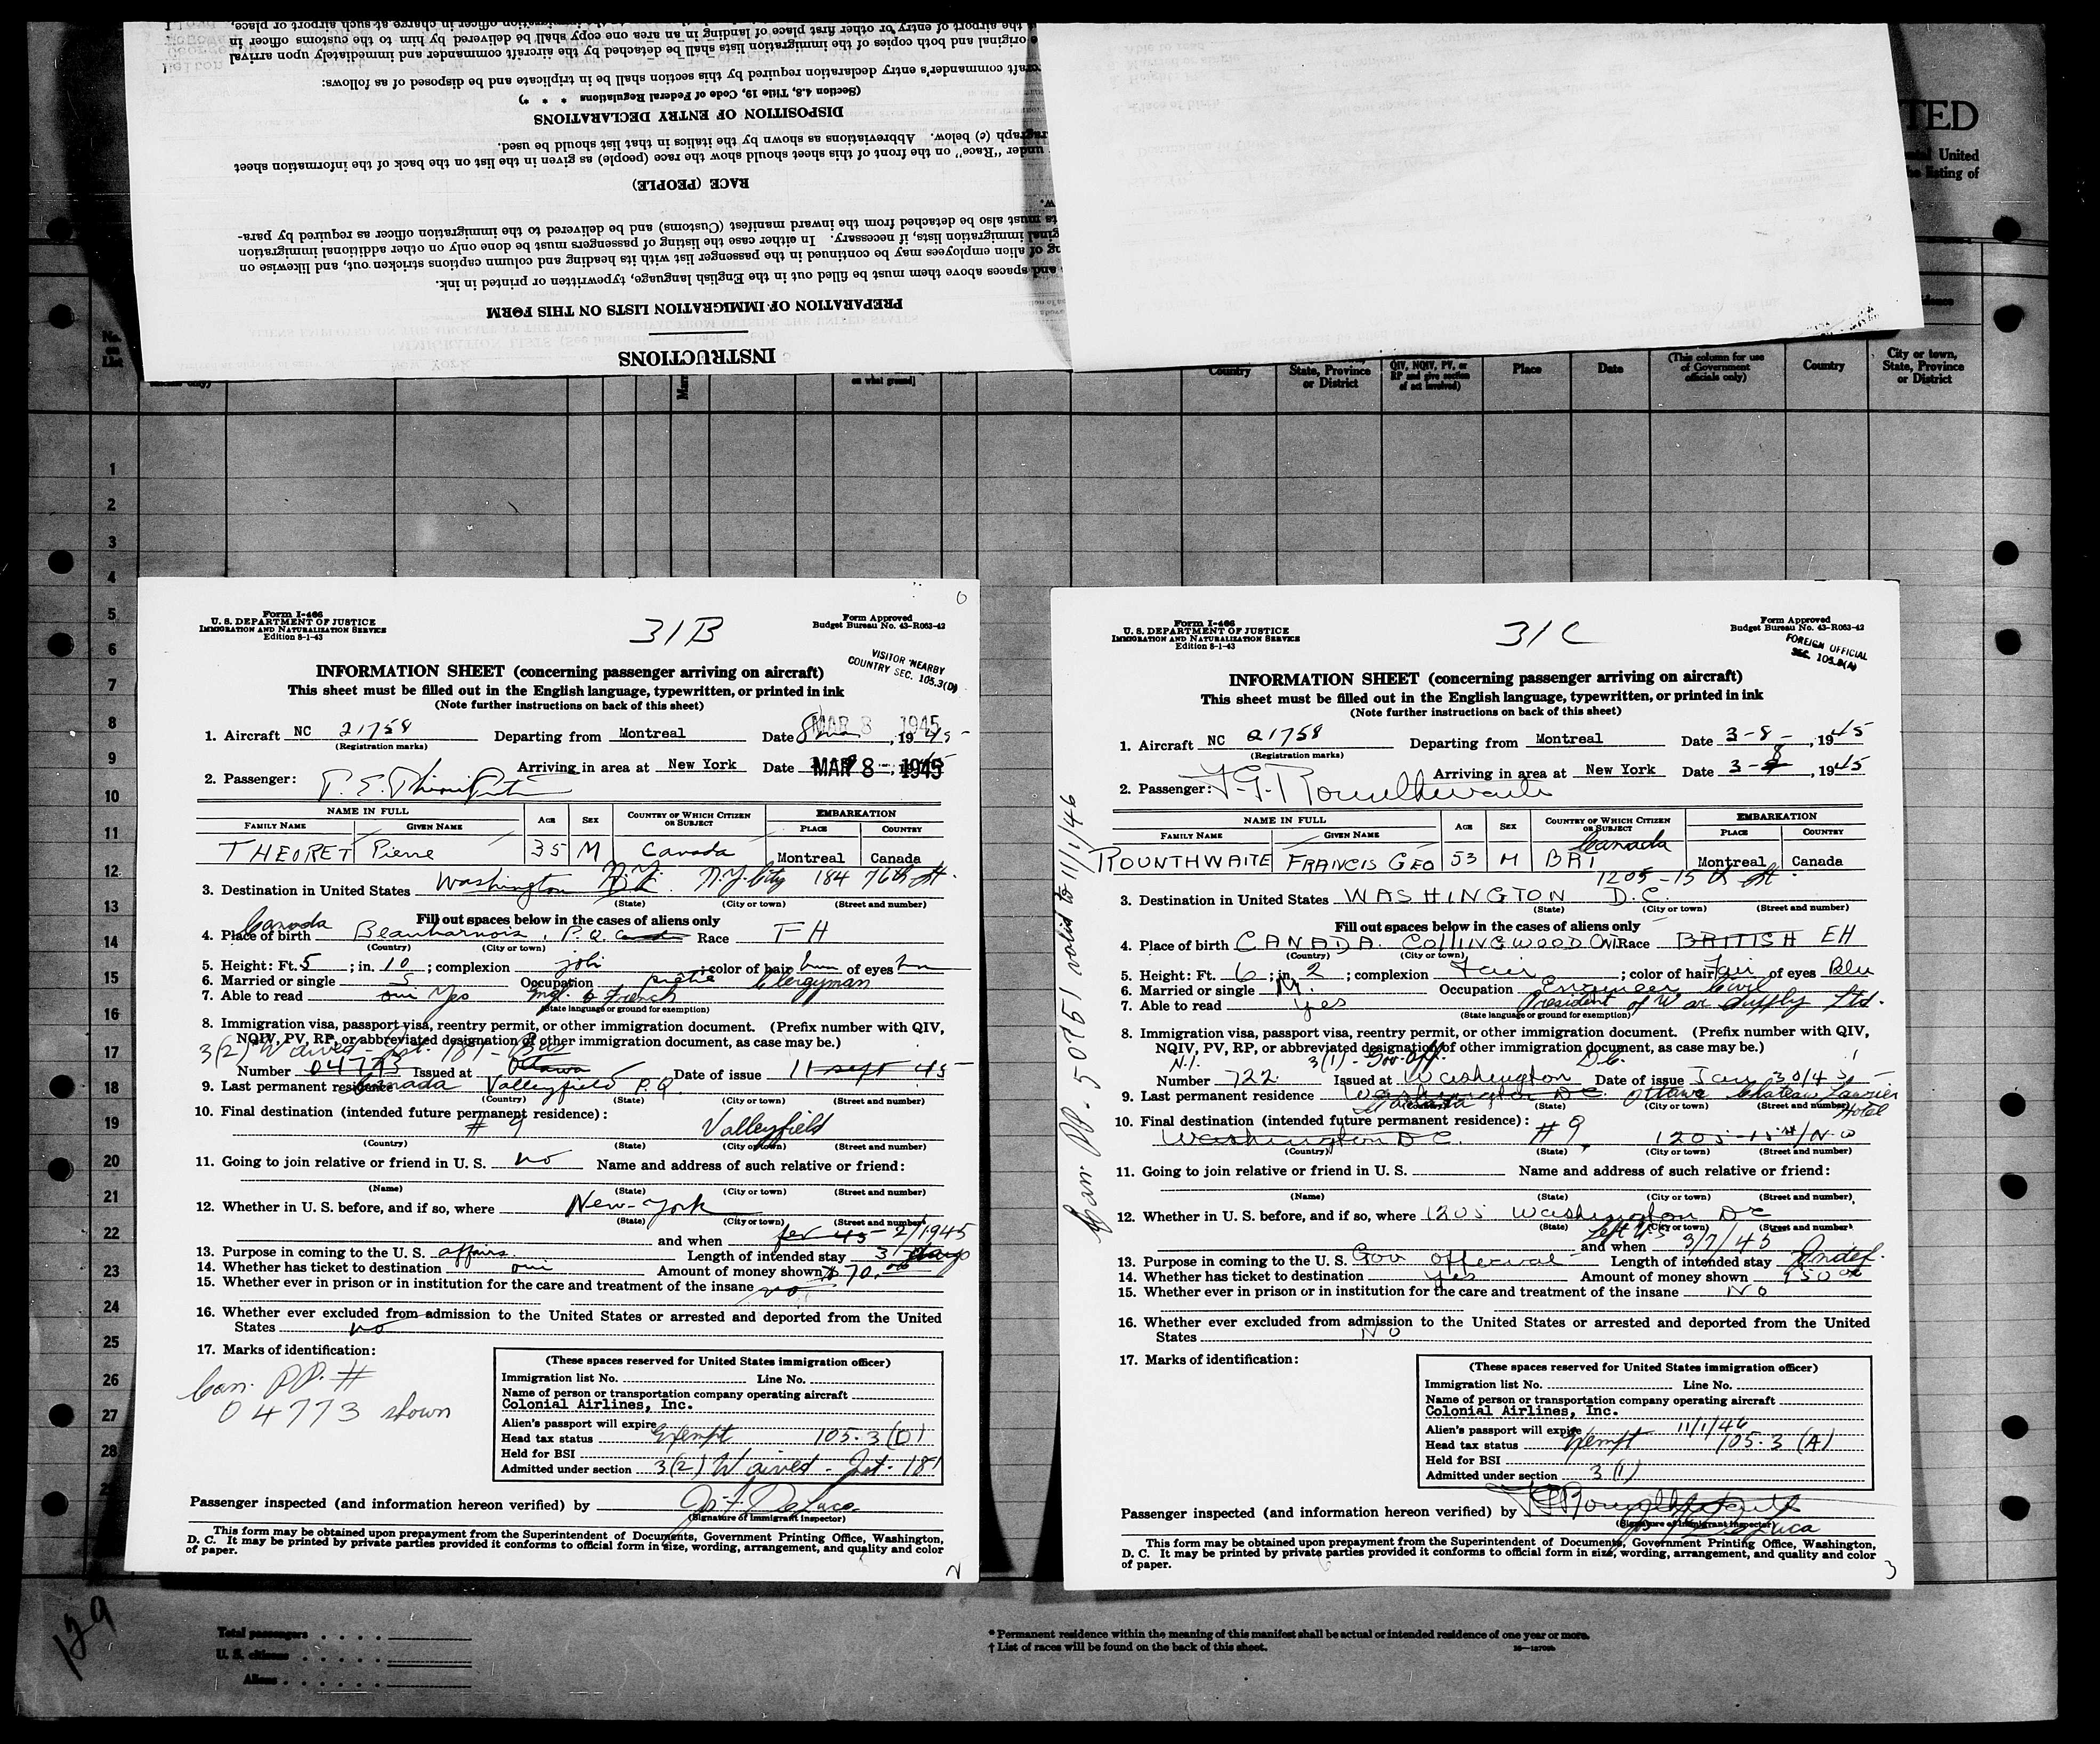 INSTRUCTIONS
PREPARATION OF IMMIGRATION LISTS ON THIS FORM
and spaces above them must be filled out in the English language, typewritten or printed in ink.
of alien employees may be continued in the passenger list with its heading and column captions stricken out, and likewise on
immigration lists, if necessary. In either case the listing of passengers must be done only on other additional immigration
must also be detached from the inward manifest (Customs) and be delivered to the immigration officer as required by para-
RACE (PEOPLE)
under "Race" on the front of this sheet should show the race (people) as given in the list on the back of the information sheet
(c) below. Abbreviations as shown by the italics in that list should be used.
DISPOSITION OF ENTRY DECLARATIONS
(Section 4.8, Title 19, Code of Federal Regulations * * *)
commander's entry declaration required by this section shall be in triplicate and be disposed of as follows:
original and both copies of the immigration lists shall be detached by the aircraft commander and immediately upon arrival
the airport of entry or other first place of landing in an area one copy shall be delivered by him to the customs officer in
immigration officer in charge at such airport or place,
TED
United
listing of
Country
State, Province or District
QIV, NQIV, PV, or RP and give section of act involved)
Place
Date
(This column for use of Government officials only)
Country
City or town, State, Province or District
1
2
3
4
5
6
7
8
9
10
11
12
13
14
15
16
17
18
19
20
21
22
23
24
25
26
27
28
Form I-466
U. S. DEPARTMENT OF JUSTICE
IMMIGRATION AND NATURALIZATION SERVICE
Edition 8-1-43
31B
Form Approved
Budget Bureau No. 43-R063-42
VISITOR NEARBY
COUNTRY SEC. 105.3(D)
INFORMATION SHEET (concerning passenger arriving on aircraft)
This sheet must be filled out in the English language, typewritten, or printed in ink
(Note further instructions on back of this sheet)
1. Aircraft NC 21758 Departing from Montreal Date MAR 8 1945, 1945
(Registration marks)
Arriving in area at New York Date MAR 8 - 1945
2. Passenger:
NAME IN FULL AGE SEX COUNTRY OF WHICH CITIZEN OR SUBJECT EMBARKATION
FAMILY NAME GIVEN NAME PLACE COUNTRY
THEORET Pierre 35 M Canada Montreal Canada
3. Destination in United States Washington N.Y. N.Y. City 184 76th St.
(State) (City or town) (Street and number)
Fill out spaces below in the cases of aliens only
4. Place of birth Canada Beauharnois, P.Q. Race FH
(Country) (City or town)
5. Height: Ft. 5; in. 10; complexion joli; color of hair brn of eyes
6. Married or single S Occupation Clergyman
7. Able to read oui Yes Engl. & French
(State language or ground for exemption)
8. Immigration visa, passport visa, reentry permit, or other immigration document. (Prefix number with QIV,
NQIV, PV, RP, or abbreviated designation of other immigration document, as case may be.)
3(2) Waived - Jst. 181 - Bus
Number 04773 Issued at Ottawa Date of issue 11 sept 45
9. Last permanent residence Canada Valleyfield P.Q.
(Country) (State) (City or town) (Street and number)
10. Final destination (intended future permanent residence):
# 9 Valleyfield
(Country) (State) (City or town) (Street and number)
11. Going to join relative or friend in U. S. no Name and address of such relative or friend:
(Name) (State) (City or town) (Street and number)
12. Whether in U. S. before, and if so, where New-York
(State) (City or town) (Street and number)
and when fev 45 - 2/1945
13. Purpose in coming to the U. S. affairs. Length of intended stay 3 days
14. Whether has ticket to destination oui Amount of money shown $70.00
15. Whether ever in prison or in institution for the care and treatment of the insane no
16. Whether ever excluded from admission to the United States or arrested and deported from the United
States no
17. Marks of identification:
Can. PP. #
04773 shown
(These spaces reserved for United States immigration officer)
Immigration list No. Line No.
Name of person or transportation company operating aircraft
Colonial Airlines, Inc.
Alien's passport will expire
Head tax status Exempt 105.3 (D)
Held for BSI
Admitted under section 3(2) Waived - Jst. 181
Passenger inspected (and information hereon verified) by Jos. F. DeLuca
(Signature of Immigrant Inspector)
This form may be obtained upon prepayment from the Superintendent of Documents, Government Printing Office, Washington,
D. C. It may be printed by private parties provided it conforms to official form in size, wording, arrangement, and quality and color
of paper.
Form I-466
U. S. DEPARTMENT OF JUSTICE
IMMIGRATION AND NATURALIZATION SERVICE
Edition 8-1-43
31C
Form Approved
Budget Bureau No. 43-R063-42
FOREIGN OFFICIAL
SEC. 105.3(A)
INFORMATION SHEET (concerning passenger arriving on aircraft)
This sheet must be filled out in the English language, typewritten, or printed in ink
(Note further instructions on back of this sheet)
1. Aircraft NC 21758 Departing from Montreal Date 3-8-, 1945
(Registration marks)
Arriving in area at New York Date 3-8, 1945
2. Passenger: F.G. Rounthwaite
NAME IN FULL AGE SEX COUNTRY OF WHICH CITIZEN OR SUBJECT EMBARKATION
FAMILY NAME GIVEN NAME PLACE COUNTRY
ROUNTHWAITE FRANCIS GEO 53 M BRI Canada Montreal Canada
1205-15th St.
3. Destination in United States WASHINGTON D.C.
(State) (City or town) (Street and number)
Fill out spaces below in the cases of aliens only
4. Place of birth CANADA. COLLINGWOOD ONT. Race BRITISH EH
(Country) (City or town)
5. Height: Ft. 6; in. 2; complexion Fair; color of hair Fair of eyes Blu
6. Married or single M. Occupation Engineer Civil
7. Able to read yes President of War Supply Ltd.
(State language or ground for exemption)
8. Immigration visa, passport visa, reentry permit, or other immigration document. (Prefix number with QIV,
NQIV, PV, RP, or abbreviated designation of other immigration document, as case may be.)
N.I. 3(1) - Gov. Off. D.C.
Number 722 Issued at Washington Date of issue Jan 30/45
9. Last permanent residence Washington D.C. Canada Ottawa Chateau Laurier Hotel
(State) (City or town) (Street and number)
10. Final destination (intended future permanent residence):
Washington D C. #9 1205-15th N.W
(Country) (State) (City or town) (Street and number)
11. Going to join relative or friend in U. S. Name and address of such relative or friend:
(Name) (State) (City or town) (Street and number)
12. Whether in U. S. before, and if so, where 1205 Washington DC
(State) (City or town) (Street and number)
Left U.S. and when 3/7/45
13. Purpose in coming to the U. S. Gov offecial Length of intended stay Indef.
14. Whether has ticket to destination Yes Amount of money shown 150.00
15. Whether ever in prison or in institution for the care and treatment of the insane No
16. Whether ever excluded from admission to the United States or arrested and deported from the United
States No
17. Marks of identification:
Can. PP. 5-0751 valid to 11/1/46
(These spaces reserved for United States immigration officer)
Immigration list No. Line No.
Name of person or transportation company operating aircraft
Colonial Airlines, Inc.
Alien's passport will expire 11/1/46
Head tax status Exempt 105.3 (A)
Held for BSI
Admitted under section 3(1)
Passenger inspected (and information hereon verified) by F G Rounthwaite
(Signature of Immigrant Inspector)
DeLuca
This form may be obtained upon prepayment from the Superintendent of Documents, Government Printing Office, Washington,
D. C. It may be printed by private parties provided it conforms to official form in size, wording, arrangement, and quality and color
of paper.
129
Total passengers
U. S. citizens
Aliens
* Permanent residence within the meaning of this manifest shall be actual or intended residence of one year or more.
† List of races will be found on the back of this sheet.